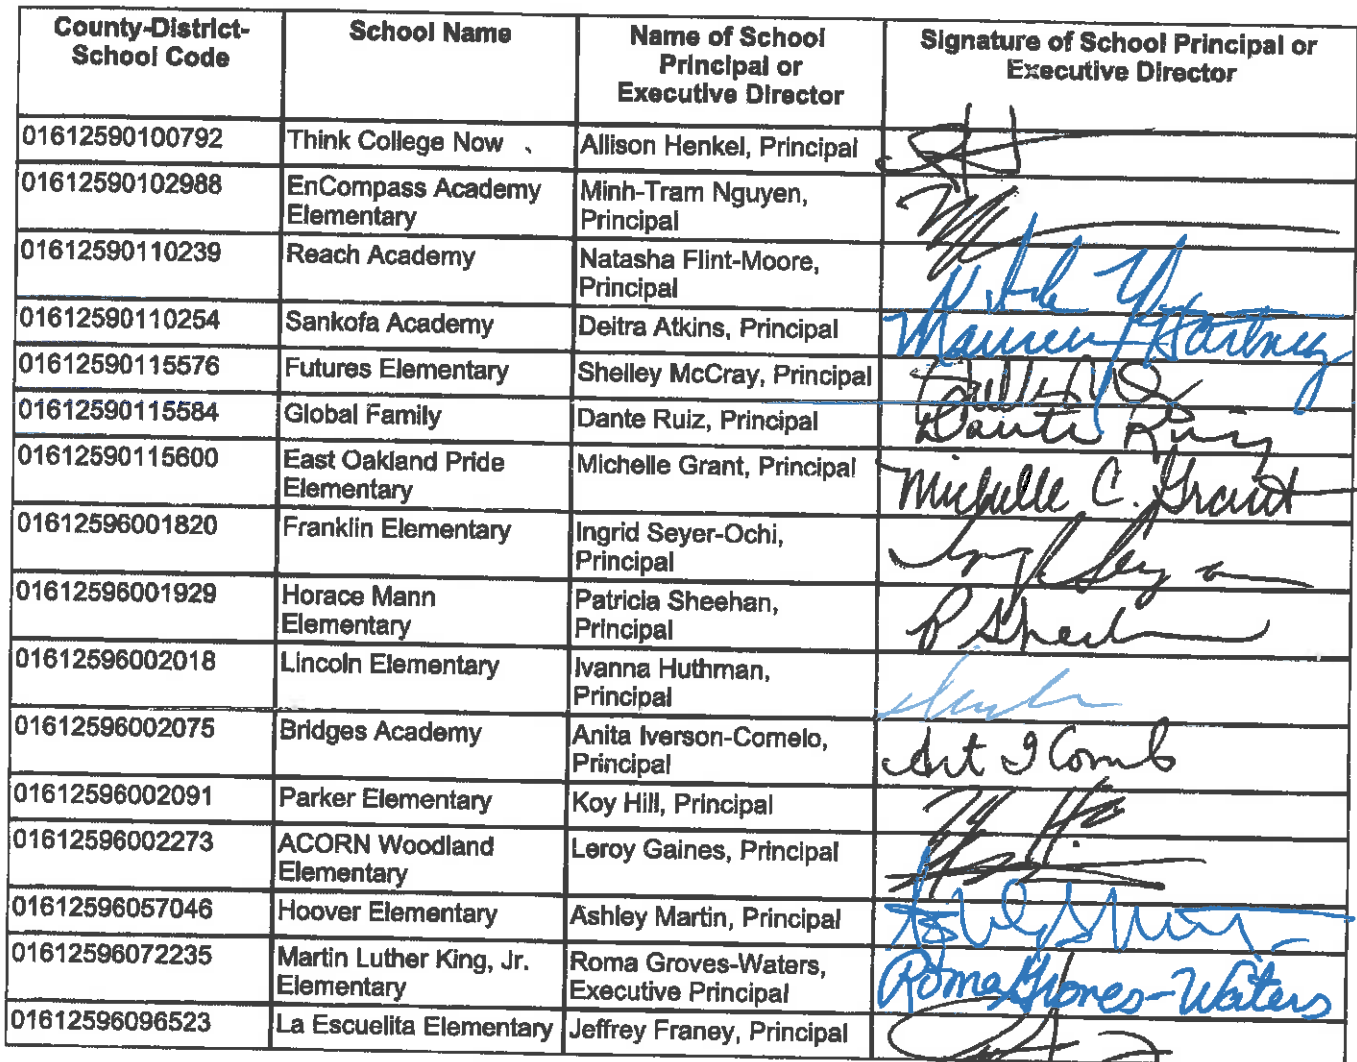 County-District- School Name Name of School Signature of School Principal or
School Code Principal or Executive Director
Executive Director
01612590100792 Think College Now Allison Henkel, Principal
01612590102988 EnCompass Academy Minh-Tram Nguyen,
Elementary Principal
01612590110239 Reach Academy Natasha Flint-Moore,
Principal
01612590110254 Sankofa Academy Deitra Atkins, Principal Maureen Hartney
01612590115576 Futures Elementary Shelley McCray, Principal
01612590115584 Global Family Dante Ruiz, Principal Dante Ruiz
01612590115600 East Oakland Pride Michelle Grant, Principal Michelle C. Grant
Elementary
01612596001820 Franklin Elementary Ingrid Seyer-Ochi,
Principal
01612596001929 Horace Mann Patricia Sheehan, P Sheehan
Elementary Principal
01612596002018 Lincoln Elementary Ivanna Huthman,
Principal
01612596002075 Bridges Academy Anita Iverson-Comelo,
Principal
01612596002091 Parker Elementary Koy Hill, Principal
01612596002273 ACORN Woodland Leroy Gaines, Principal
Elementary
01612596057046 Hoover Elementary Ashley Martin, Principal
01612596072235 Martin Luther King, Jr. Roma Groves-Waters, Roma Groves-Waters
Elementary Executive Principal
01612596096523 La Escuelita Elementary Jeffrey Franey, Principal